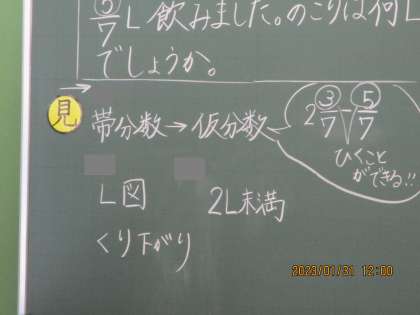 5/7 L 飲みました。のこりは何L
でしょうか。
見
帯分数→仮分数
2 3/7 - 5/7
ひくこと
ができる!!
L図
2L未満
くり下がり
2023/01/31 12:00